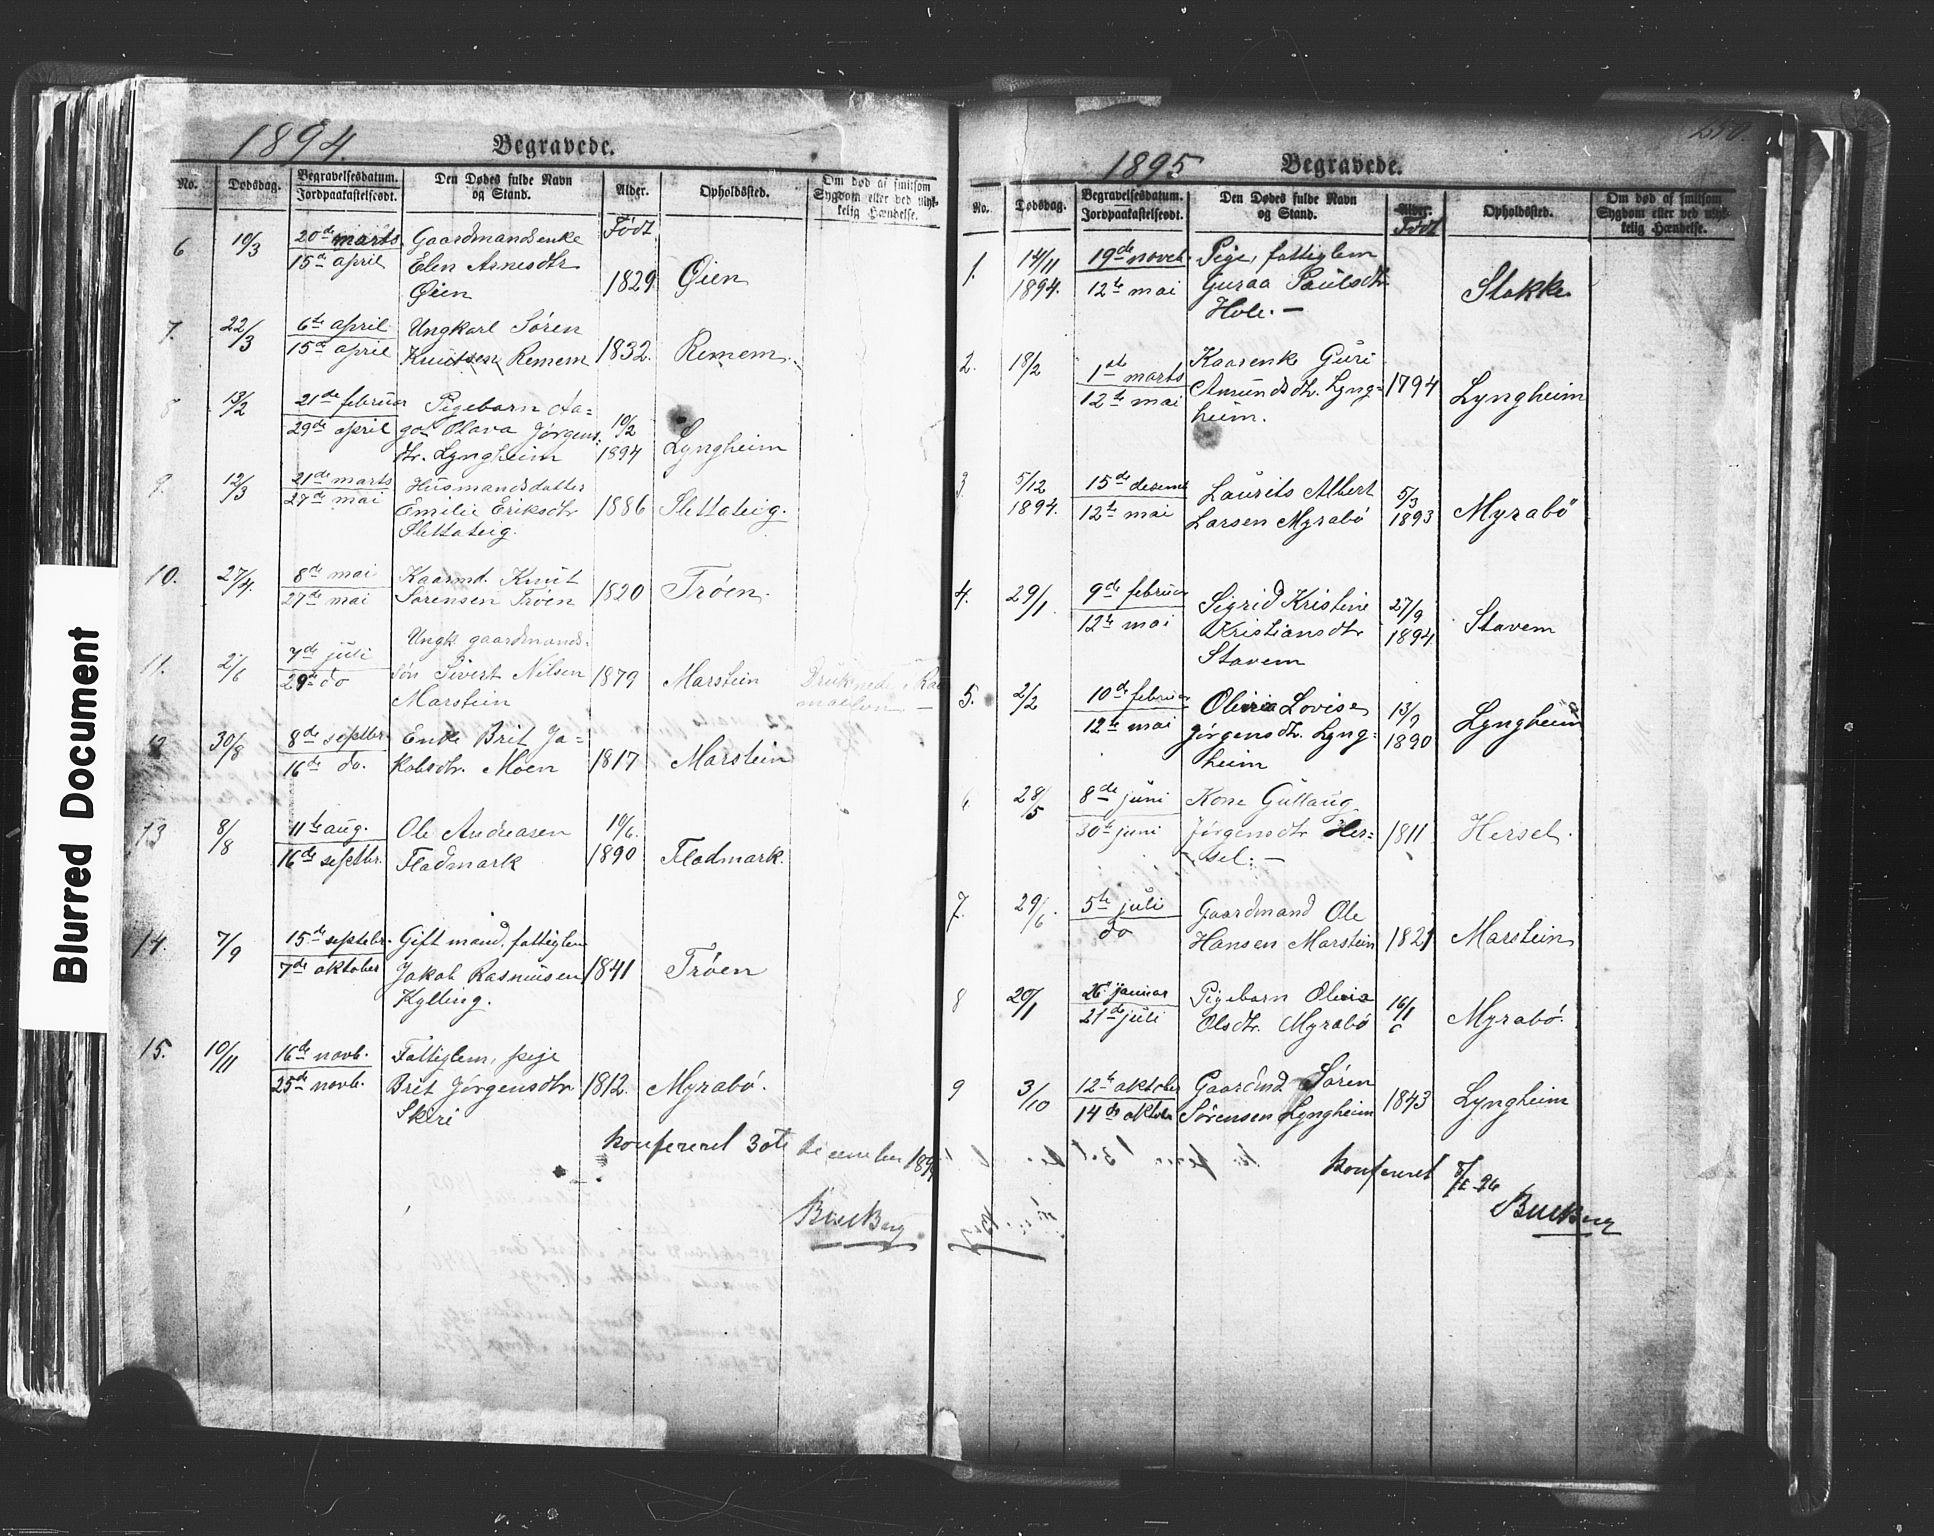 Blurred Document
1894.
Begravede.
No.
Dødsdag.
Begravelsesdatum.
Jordpaakastelsesdt.
Den Dødes fulde Navn
og Stand.
Alder.
Født
Opholdssted.
Om død af smitsom
Sygdom eller ved ulyk-
kelig Hændelse.
6 10/3 20de marts Gaardmandsenke
15de april Elen Arnesdtr
Øien 1829 Øien
7. 22/3 6te april Ungkarl Søren
15de april Knutsen Remem 1832. Remem.
8 13/2 21de februar Pigebarn Aa=
29de april got Olava Jørgens= 10/2
dtr. Lyngheim 1894 Lyngheim
9. 12/3 21de marts Husmandsdatter
27de mai Emilie Eriksdtr 1886 Slettateig.
Slettateig.
10. 27/4. 8de mai Kaarmd. Knut
27de mai Sørensen Trøen 1820 Trøen.
11. 21/6 7de juli Ungk. gaardmands-
29de do søn Sivert Nilsen 1879 Marstein Druknede i Rau
Marstein maelven
12 30/8 8de septbr. Enke Brit Ja=
16de do. kobsdtr. Moen 1817 Marstein
13 8/8 11te aug. Ole Andreasen 19/6.
16de septbr. Fladmark 1890 Fladmark.
14. 7/9 15de septebr. Gift mand, fattiglem
7de oktober Jakob Rasmussen 1841 Trøen
Kylling.
15. 10/11 16de novb. Fattiglem, pige
25de novb. Brit Jørgensdtr 1812. Myrabø.
Skiri
Konfereret 30te december 1894
1895
Begravede.
210.
No.
Dødsdag.
Begravelsesdatum.
Jordpaakastelsesdt.
Den Dødes fulde Navn
og Stand.
Alder.
Født
Opholdssted.
Om død af smitsom
Sygdom eller ved ulyk-
kelig Hændelse.
1. 14/11 19de noveb. Pige, fattiglem
1894. 12te mai Guraa Paulsdtr Stokke
Hole. —
2. 18/2 1ste marts Kaarenke Guri
12te mai Amundsdtr. Lyng= 1794 Lyngheim
heim.
3. 5/12 15de decemb Laurits Albert 5/3
1894. 12te mai Larsen Myrabø 1893 Myrabø
4. 29/1. 9de februar Sigrid Kristine 27/9
12te mai Kristiansdtr 1894. Stavem
Stavem
5. 2/2 10de februar Olivia Lovise 13/9
12te mai Jørgensdtr. Lyng= 1890 Lyngheim
heim
6 28/5 8de juni Kone Guttaug
30te juni Jørgensdtr Her= 1811 Hersel.
sel. —
7. 29/6. 5te juli Gaardmand Ole
do Hansen Marstein 1821 Marstein
8 20/1 26. januar Pigebarn Olivia 16/1
21de juli Olsdtr. Myrabø Myrabø.
9 3/10 12te oktober Gaardmd Søren
14de oktober Sørensen Lyngheim 1843 Lyngheim
Konfereret